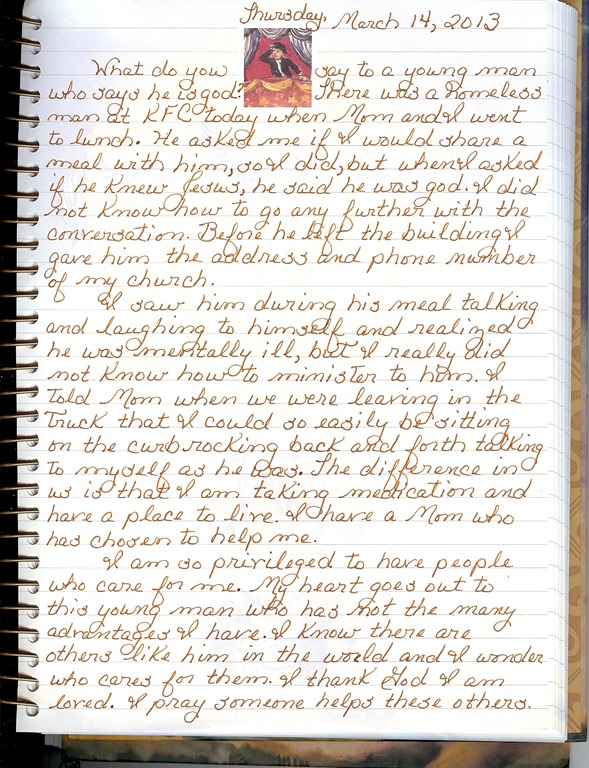 Thursday, March 14, 2013
What do you say to a young man
who says he is god? There was a homeless
man at KFC today when Mom and I went
to lunch. He asked me if I would share a
meal with him, so I did, but when I asked
if he knew Jesus, he said he was god. I did
not know how to go any further with the
conversation. Before he left the building I
gave him the address and phone number
of my church.
I saw him during his meal talking
and laughing to himself and realized
he was mentally ill, but I really did
not know how to minister to him. I
told Mom when we were leaving in the
truck that I could so easily be sitting
on the curb rocking back and forth talking
to myself as he was. The difference in
us is that I am taking medication and
have a place to live. I have a Mom who
has chosen to help me.
I am so privileged to have people
who care for me. My heart goes out to
this young man who has not the many
advantages I have. I know there are
others like him in the world and I wonder
who cares for them. I thank God I am
loved. I pray someone helps these others.